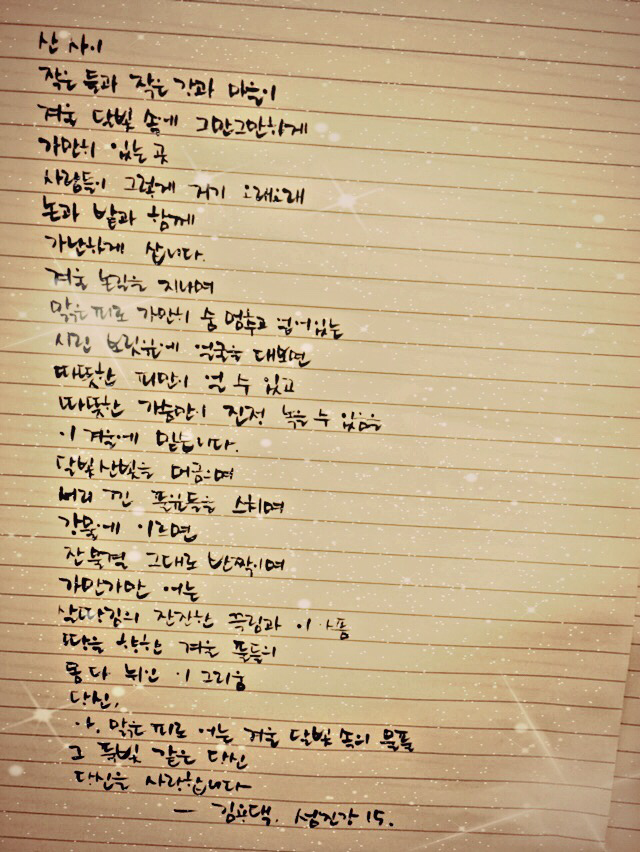 산 사이
작은 들과 작은 강과 마을이
겨울 달빛 속에 그만그만하게
가만히 있는 곳
사람들이 그렇게 거기 오래오래
논과 밭과 함께
가난하게 삽니다.
겨울 논길을 지나며
맑은 피로 가만히 숨 멈추고 얼어있는
시린 보릿잎에 얼굴을 대보면
따뜻한 피만이 얼 수 있고
따뜻한 가슴만이 진정 녹을 수 있음을
이 겨울에 믿습니다.
달빛 산빛을 머금으며
서리 낀 풀잎들을 스치며
강물에 이르면
잔물결 그대로 반짝이며
가만가만 어는
살땅김의 잔잔한 끌림과 이 아픔
땅을 향한 겨울 풀들의
몸 다 뉘인 이 그리움
당신,
아, 맑은 피로 어는 겨울 달빛 속의 물풀
그 풀빛 같은 당신
당신을 사랑합니다
- 김용택. 섬진강 15.